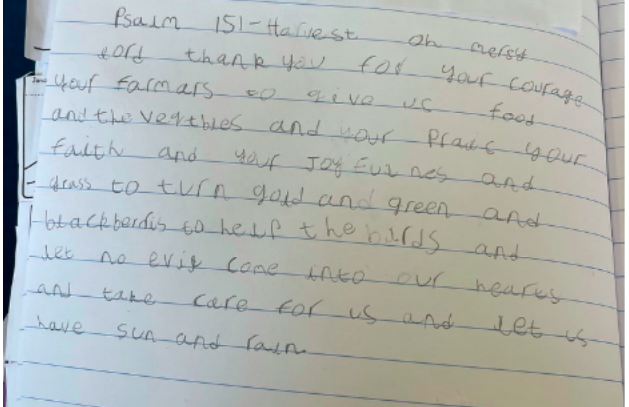 Psalm 151-Harvest oh mersy
Lord thank you for your courage
your farmars to give us food
and the vegtbles and your praic your
faith and your Joyfulnes and
grass to turn gold and green and
blackberdis to help the birds and
let no evil come into our hearts
and take care for us and let us
have sun and rain.